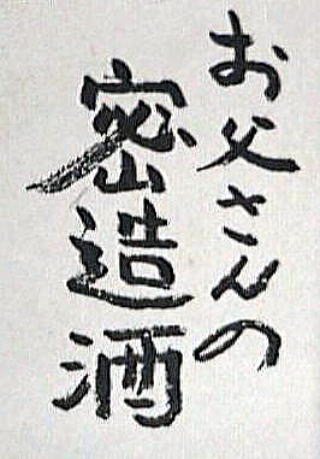 お父さんの
密造酒